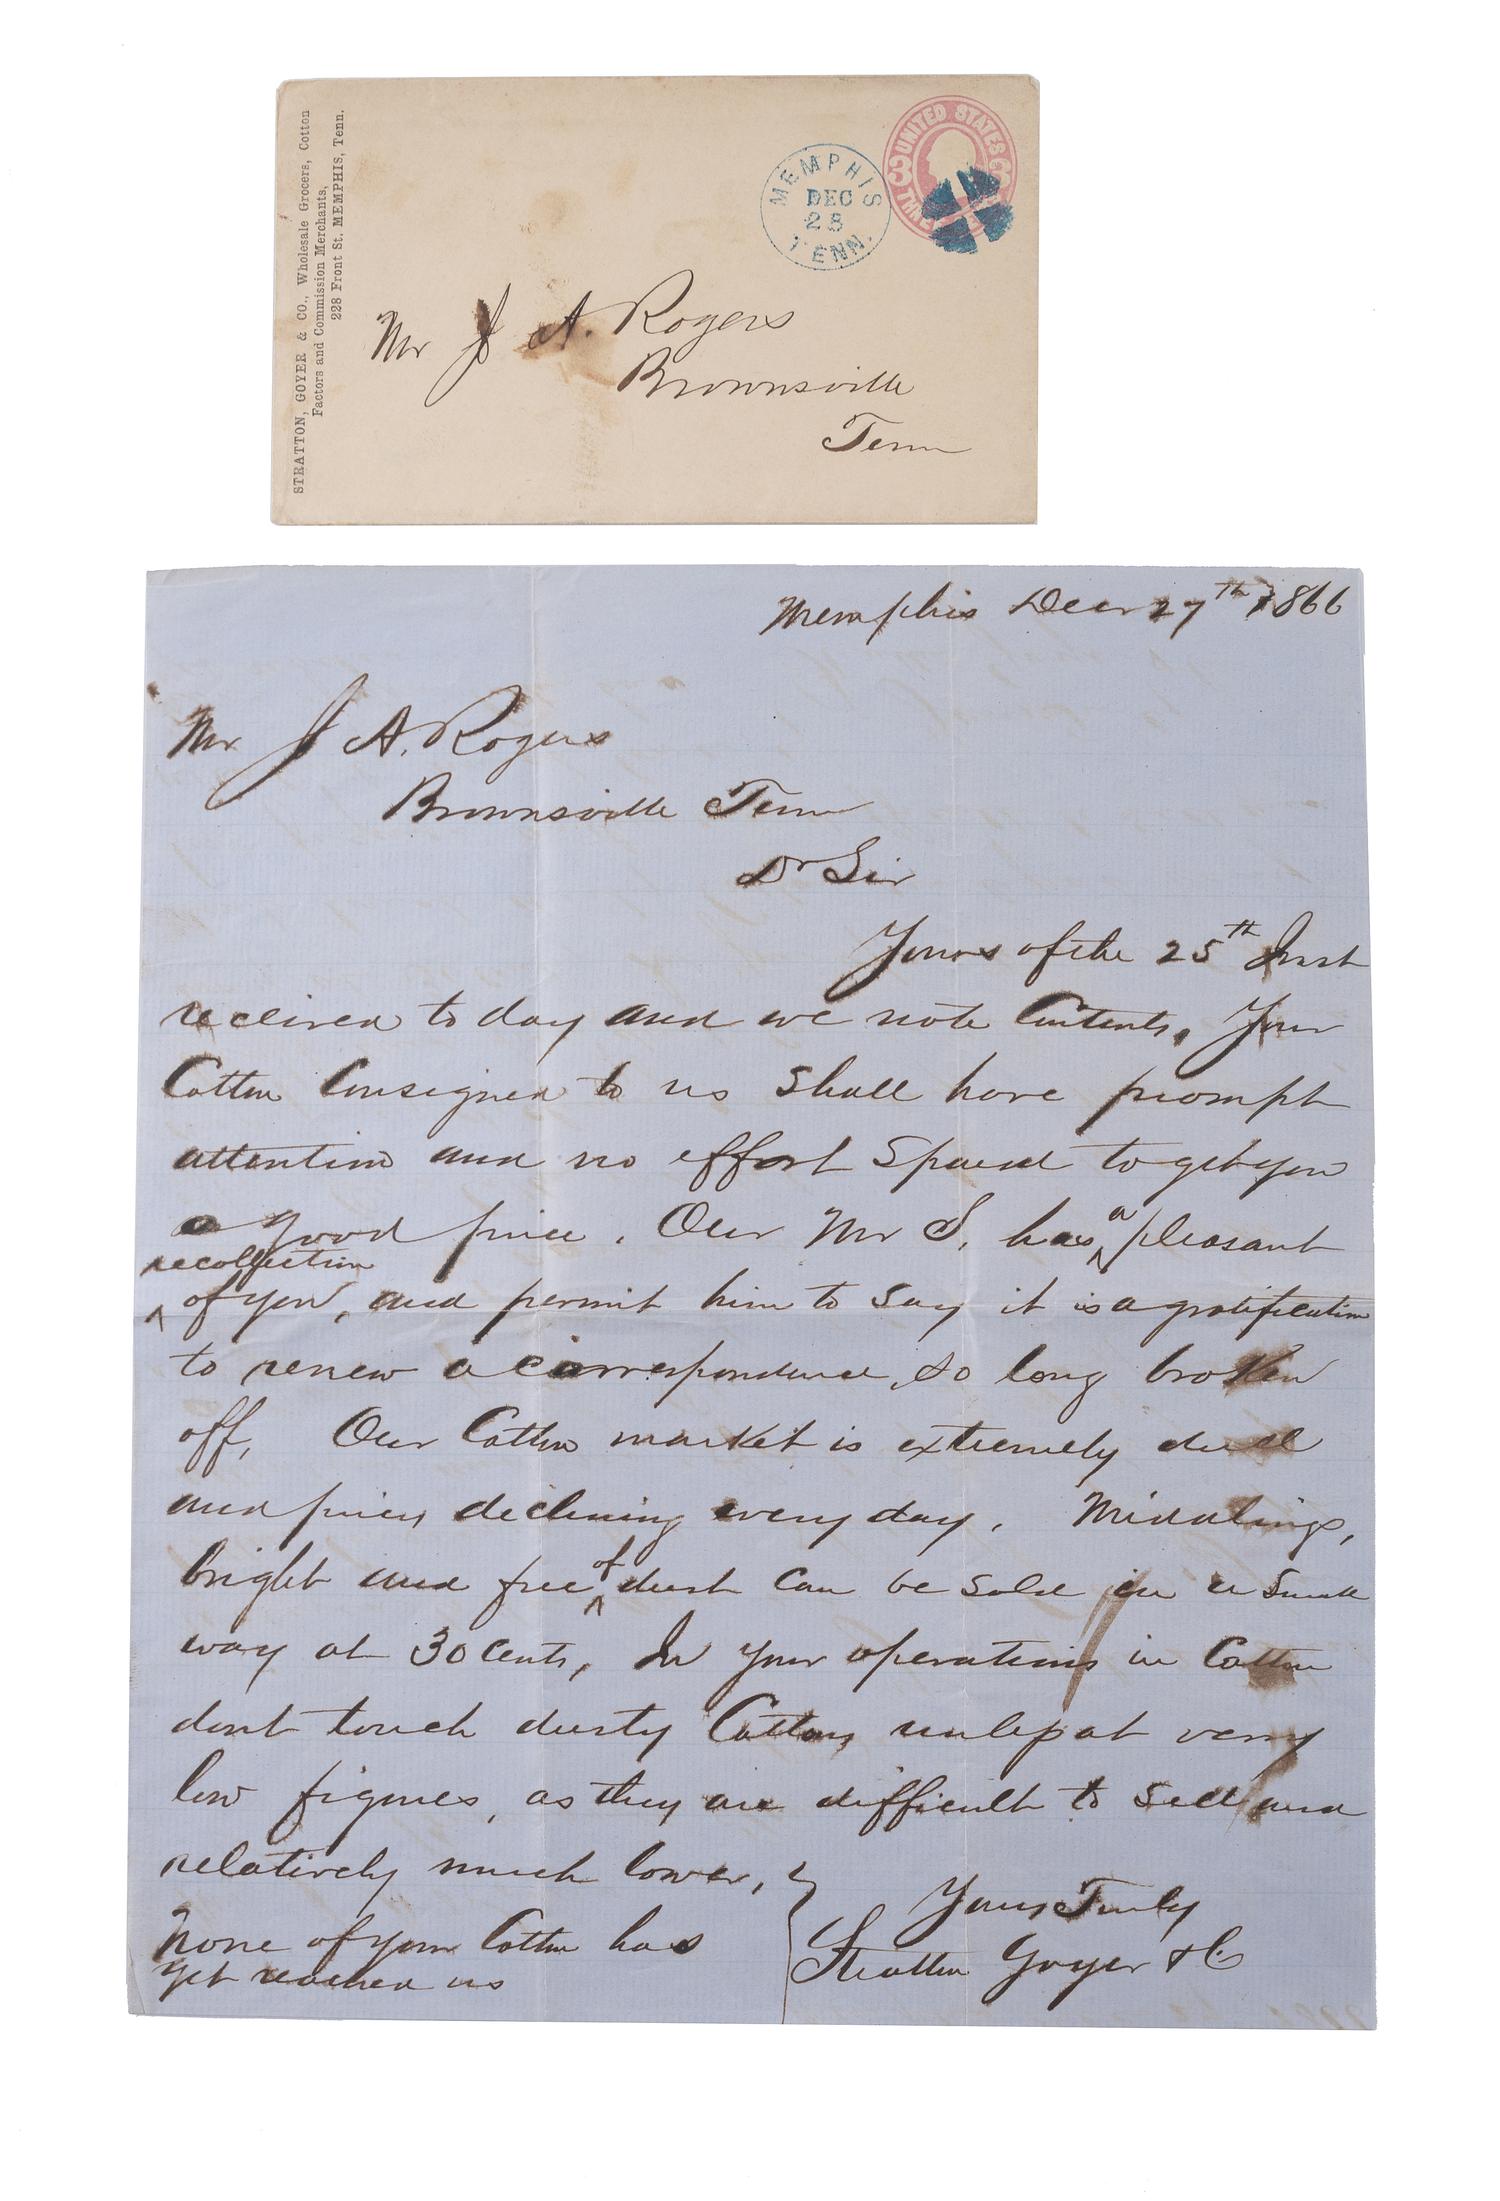 STRATTON, GOYER & CO., Wholesale Grocers, Cotton
Factors and Commission Merchants,
228 Front St. MEMPHIS, Tenn.
MEMPHIS
DEC
28
TENN.
UNITED STATES
THREE
3 3
Mr J A. Rogers
Brownsville
Tenn
Memphis Decr 27th 1866
Mr J A. Rogers
Brownsville Tenn
Dr Sir
Yours of the 25th Inst
received to day and we note Contents, Your
Cotton Consigned to us Shall have prompt
attention and no effort Spared to get you
a good price. Our Mr S. has a pleasant
recollection
of you, and permit him to Say it is a gratification
to renew a correspondence, so long broken
off, Our Cotton market is extremely dull
and prices declining every day. Middlings,
bright and free of dust Can be Sold in a Small
way at 30 Cents, In your operations in Cotton
dont touch dusty Cottons unless at very
low figures, as they are difficult to Sell and
relatively much lower,
None of your Cotton has
yet reached us
Yours Truly
Stratton Goyer & Co